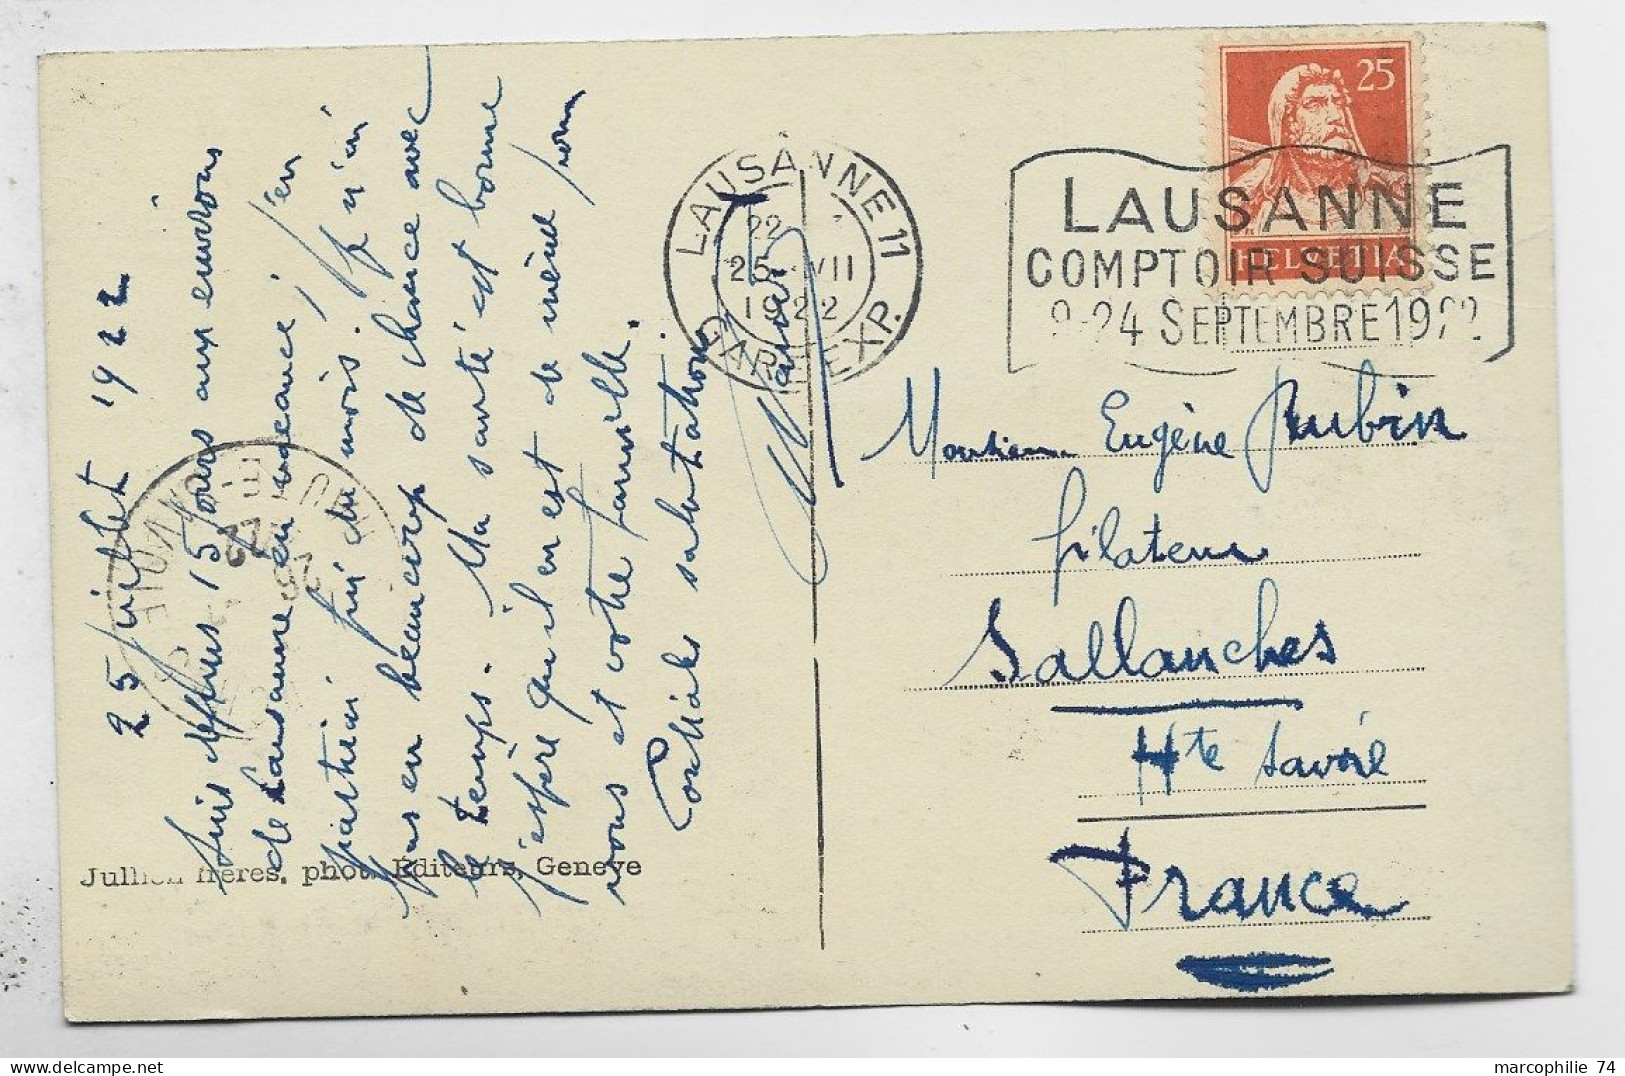 25 juillet 1922
Suis depuis 15 jours aux environs
de Lausanne en vacance, j'en
partirai fin du mois. Je n'ai
pas eu beaucoup de chance avec
le temps. Ma santé est bonne
j'espère qu'il en est de même pour
vous et votre famille.
Cordiales salutations.
Jullien frères, phot. Editeurs, Geneve
LAUSANNE 11
22
25 VII
1922
GARE EXP.
25
HELVETIA
LAUSANNE
COMPTOIR SUISSE
9-24 SEPTEMBRE 1922
Monsieur Eugène Rubin
filateur
Sallanches
Hte Savoie
France
HTE SAVOIE
22
marcophilie 74